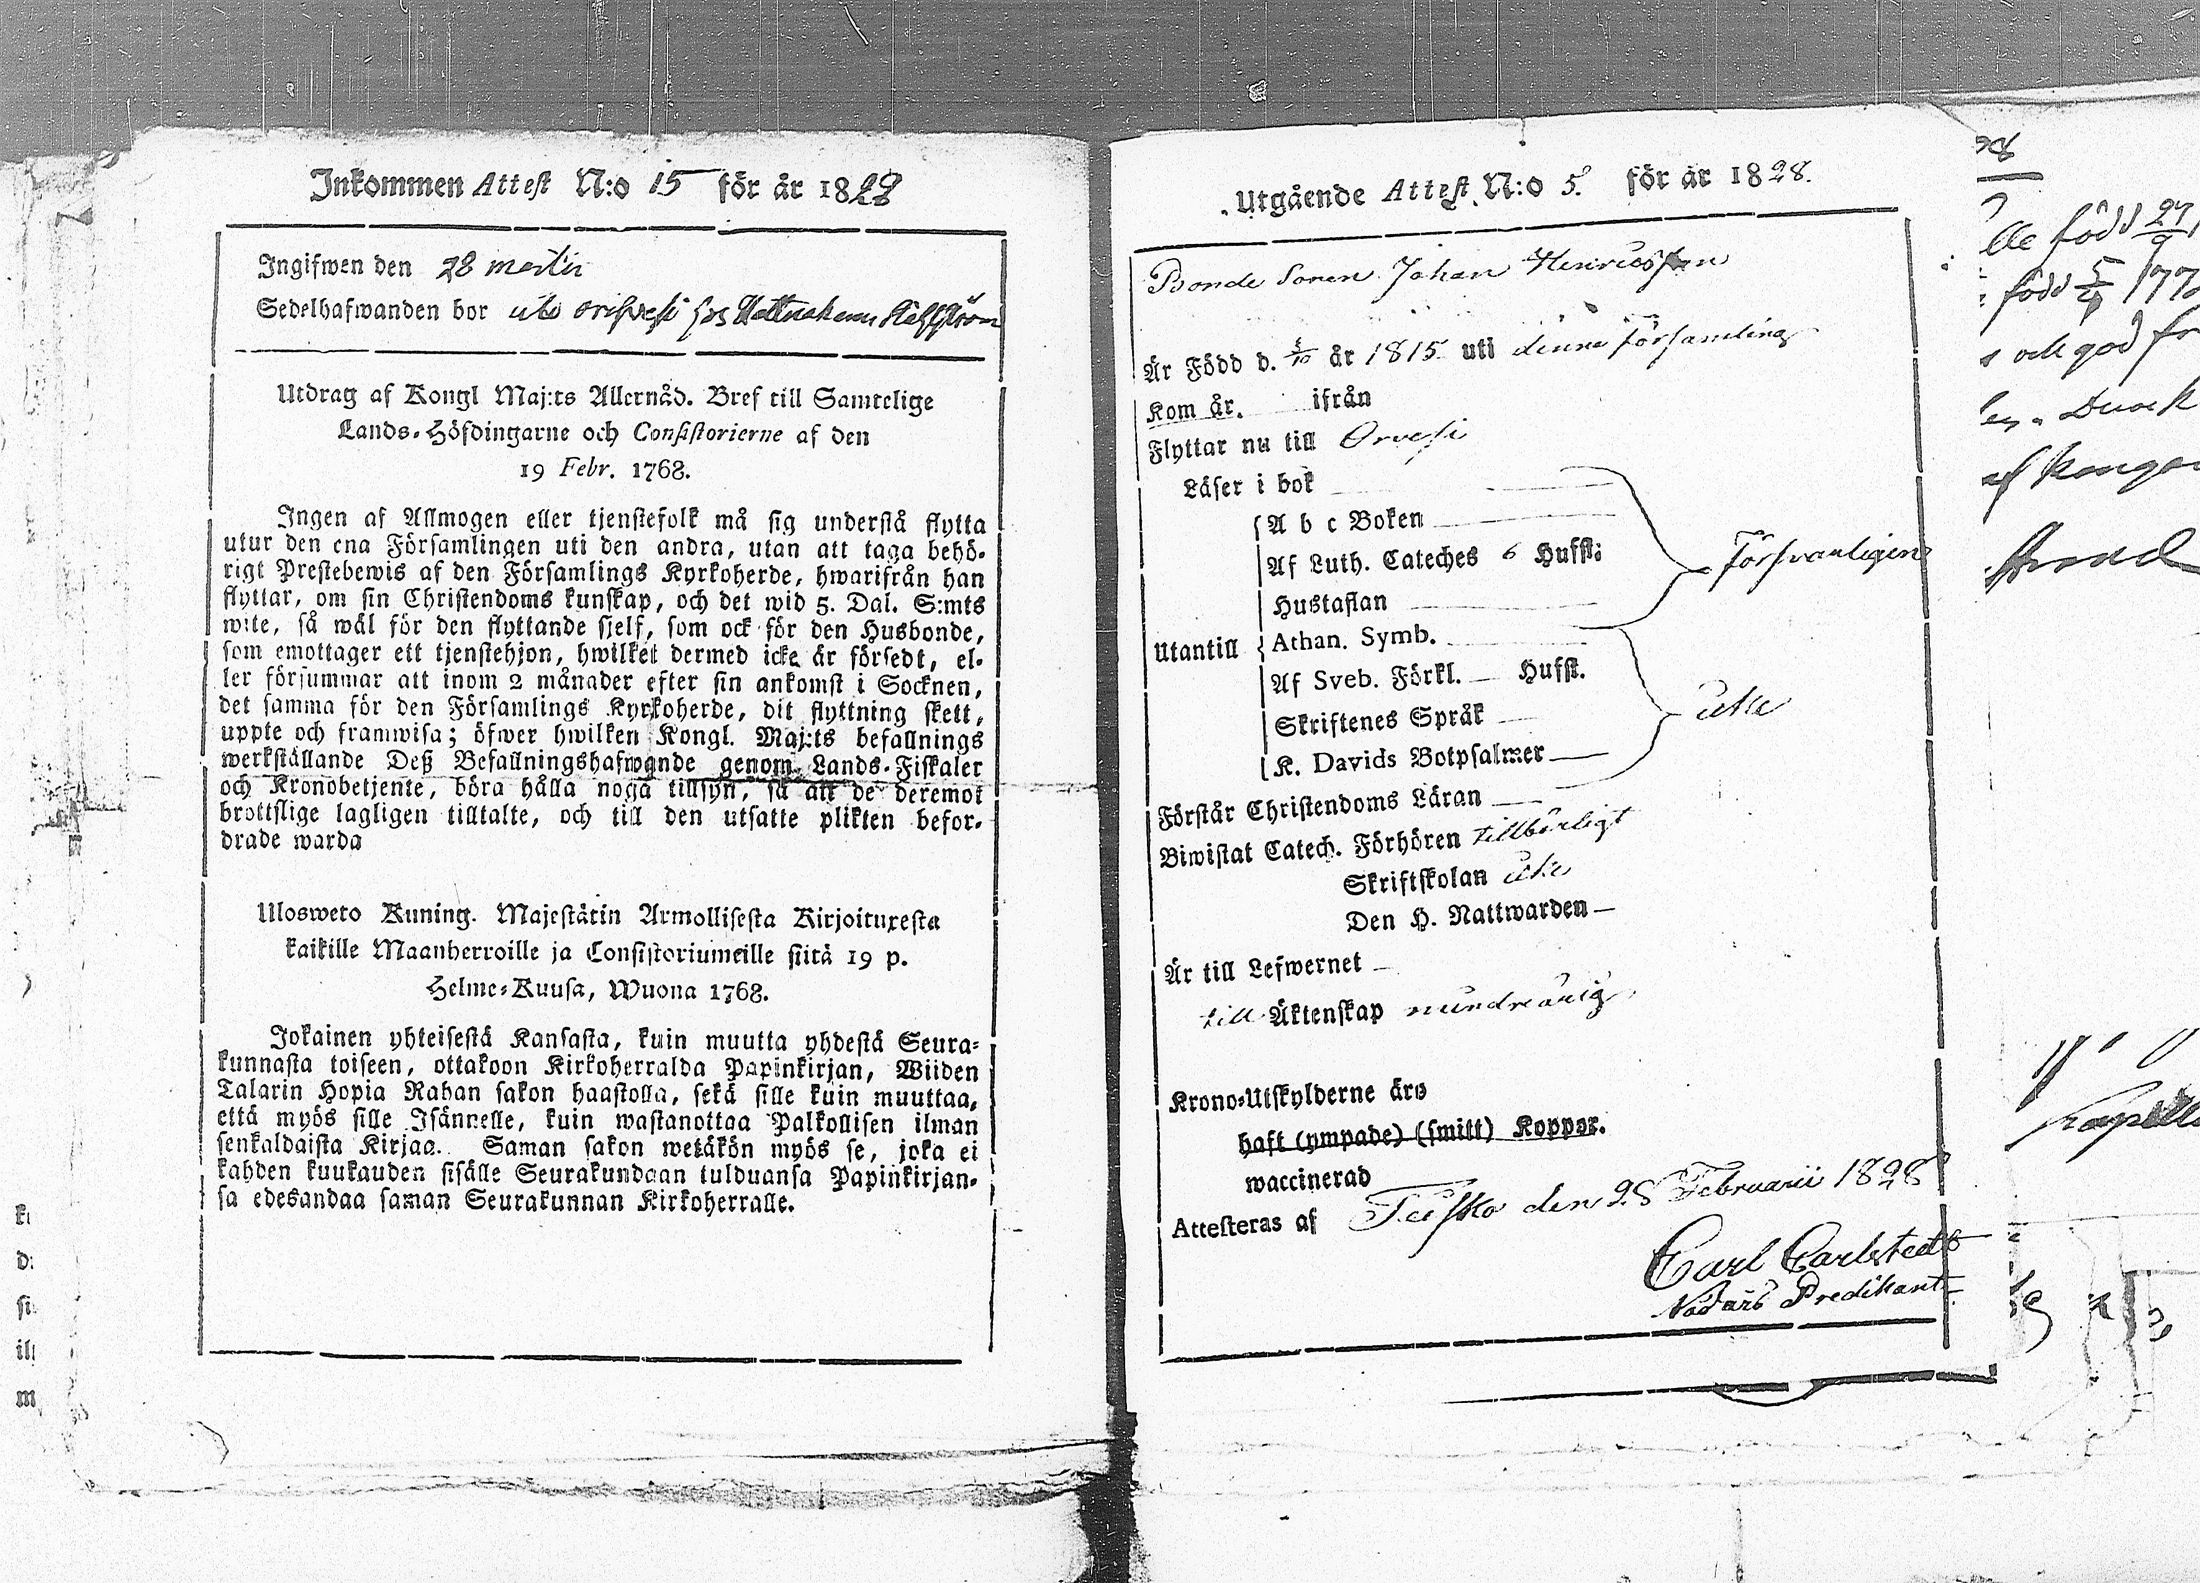 Inkommen Attest N:o 15 för år 1828
Ingifwen den 28 martii
Sedelhafwanden bor uti hos
Utdrag af Kongl Maj:ts Allernåd. Bref till Samtelige
Lands-Höfdingarne och Consistorierne af den
19 Febr. 1768.
Ingen af Allmogen eller tjenstefolk må sig understå flytta
utur den ena Församlingen uti den andra, utan att taga behö-
rigt Prestebewis af den Församlings Kyrkoherde, hwarifrån han
flyttar, om sin Christendoms kunskap, och det wid 5. Dal. S:mts
wite, så wäl för den flyttande sjelf, som ock för den Husbonde,
som emottager ett tjenstehjon, hwilket dermed icke är försedt, el-
ler försummar att inom 2 månader efter sin ankomst i Socknen,
det samma för den Församlings Kyrkoherde, dit flyttning skett,
uppte och framwisa; öfwer hwilken Kongl. Maj:ts befallnings
werkställande Deß Befallningshafwande genom Lands-Fiskaler
och Kronobetjente, böra hålla noga tillsyn, så att de deremot
brottslige lagligen tilltalte, och till den utsatte plikten befor-
drade warda
Ulosweto Kuning. Majestätin Armollisesta Kirjoituxesta
kaikille Maanherroille ja Consistoriumeille siitä 19 p.
Helme-Kuusa, Wuona 1768.
Jokainen yhteisestä Kansasta, kuin muutta yhdestä Seura-
kunnasta toiseen, ottakoon Kirkoherralda Papinkirjan, Wiiden
Talarin Hopia Rahan sakon haastolla, sekä sille kuin muuttaa,
että myös sille Isännelle, kuin wastanottaa Palkollisen ilman
senkaldaista Kirjaa. Saman sakon wetäkön myös se, joka ei
kahden kuukauden sisälle Seurakundaan tulduansa Papinkirjan-
sa edesandaa saman Seurakunnan Kirkoherralle.
Utgående Attest N:o 5. för år 1828.
Bonde Sonen Johan Henricsson
Är Född d. 5/10 år 1815 uti denna församling
Kom år. ifrån
Flyttar nu till Orvesi
Läser i bok
A b c Boken
Af Luth. Cateches 6 Hufst:
Försvarligen
Hustaflan
Utantill Athan. Symb.
Af Sveb. Förkl. — Hufst.
Skriftenes Språk
icke
K. Davids Botpsalmer
Förstår Christendoms Läran
Biwistat Catech. Förhören tillbörligt
Skriftskolan icke
Den H. Nattwarden —
Är till Lefwernet —
till Äktenskap mindreårig
Krono-Utskylderne äro
haft (ympade) (smitt) Koppor.
waccinerad
Attesteras af Teisko den 28 Februarii 1828
Carl Carlstedt
Nådårs Predikant
född 27/9
född 5/4 177
och god
af